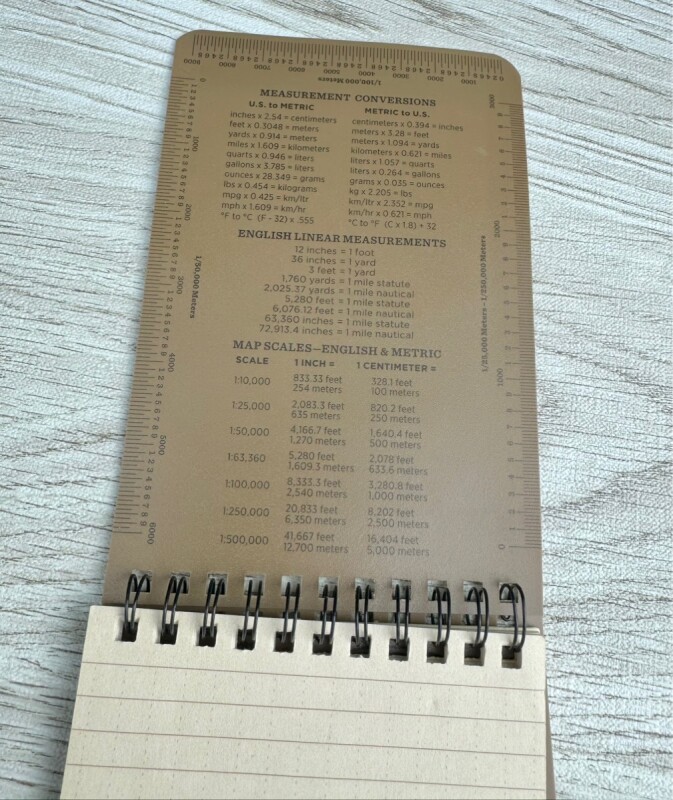 8000 7000 6000 5000 4000 3000 2000 1000 0
1/100,000 Meters
MEASUREMENT CONVERSIONS
U.S. to METRIC
inches x 2.54 = centimeters
feet x 0.3048 = meters
yards x 0.914 = meters
miles x 1.609 = kilometers
quarts x 0.946 = liters
gallons x 3.785 = liters
ounces x 28.349 = grams
lbs x 0.454 = kilograms
mpg x 0.425 = km/ltr
mph x 1.609 = km/hr
°F to °C (F - 32) x .555
METRIC to U.S.
centimeters x 0.394 = inches
meters x 3.28 = feet
meters x 1.094 = yards
kilometers x 0.621 = miles
liters x 1.057 = quarts
liters x 0.264 = gallons
grams x 0.035 = ounces
kg x 2.205 = lbs
km/ltr x 2.352 = mpg
km/hr x 0.621 = mph
°C to °F (C x 1.8) + 32
ENGLISH LINEAR MEASUREMENTS
12 inches = 1 foot
36 inches = 1 yard
3 feet = 1 yard
1,760 yards = 1 mile statute
2,025.37 yards = 1 mile nautical
5,280 feet = 1 mile statute
6,076.12 feet = 1 mile nautical
63,360 inches = 1 mile statute
72,913.4 inches = 1 mile nautical
MAP SCALES—ENGLISH & METRIC
SCALE 1 INCH = 1 CENTIMETER =
1:10,000 833.33 feet 328.1 feet
254 meters 100 meters
1:25,000 2,083.3 feet 820.2 feet
635 meters 250 meters
1:50,000 4,166.7 feet 1,640.4 feet
1,270 meters 500 meters
1:63,360 5,280 feet 2,078 feet
1,609.3 meters 633.6 meters
1:100,000 8,333.3 feet 3,280.8 feet
2,540 meters 1,000 meters
1:250,000 20,833 feet 8,202 feet
6,350 meters 2,500 meters
1:500,000 41,667 feet 16,404 feet
12,700 meters 5,000 meters
0 1000 2000 3000 4000 5000 6000
1/50,000 Meters
1/25,000 Meters - 1/250,000 Meters
3000 2000 1000 0